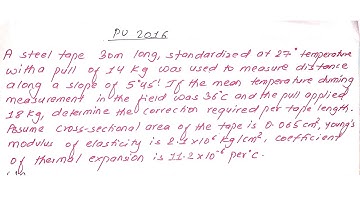 PU 2016
A steel tape 30m long, standardized at 27° temperature
with a pull of 14 kg was used to measure distance
along a slope of 5°45'. If the mean temperature during
measurement in the field was 36°c and the pull applied
18 kg, determine the correction required per tape length.
Assume cross-sectional area of the tape is 0.065 cm², young's
modulus of elasticity is 2.1x10⁶ kg/cm², coefficient
of thermal expansion is 11.2x10⁻⁶ per°c.